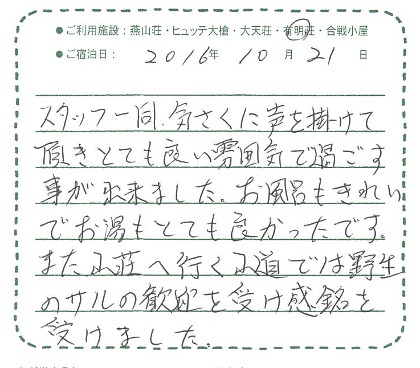 ●ご利用施設：燕山荘・ヒュッテ大槍・大天荘・有明荘・合戦小屋
●ご宿泊日： 2016年 10月 21日
スタッフ一同、気さくに声を掛けて
頂きとても良い雰囲気で過ごす
事が出来ました。お風呂もきれい
でお湯もとても良かったです。
また山荘へ行く山道では野生
のサルの歓迎を受け感銘を
受けました。